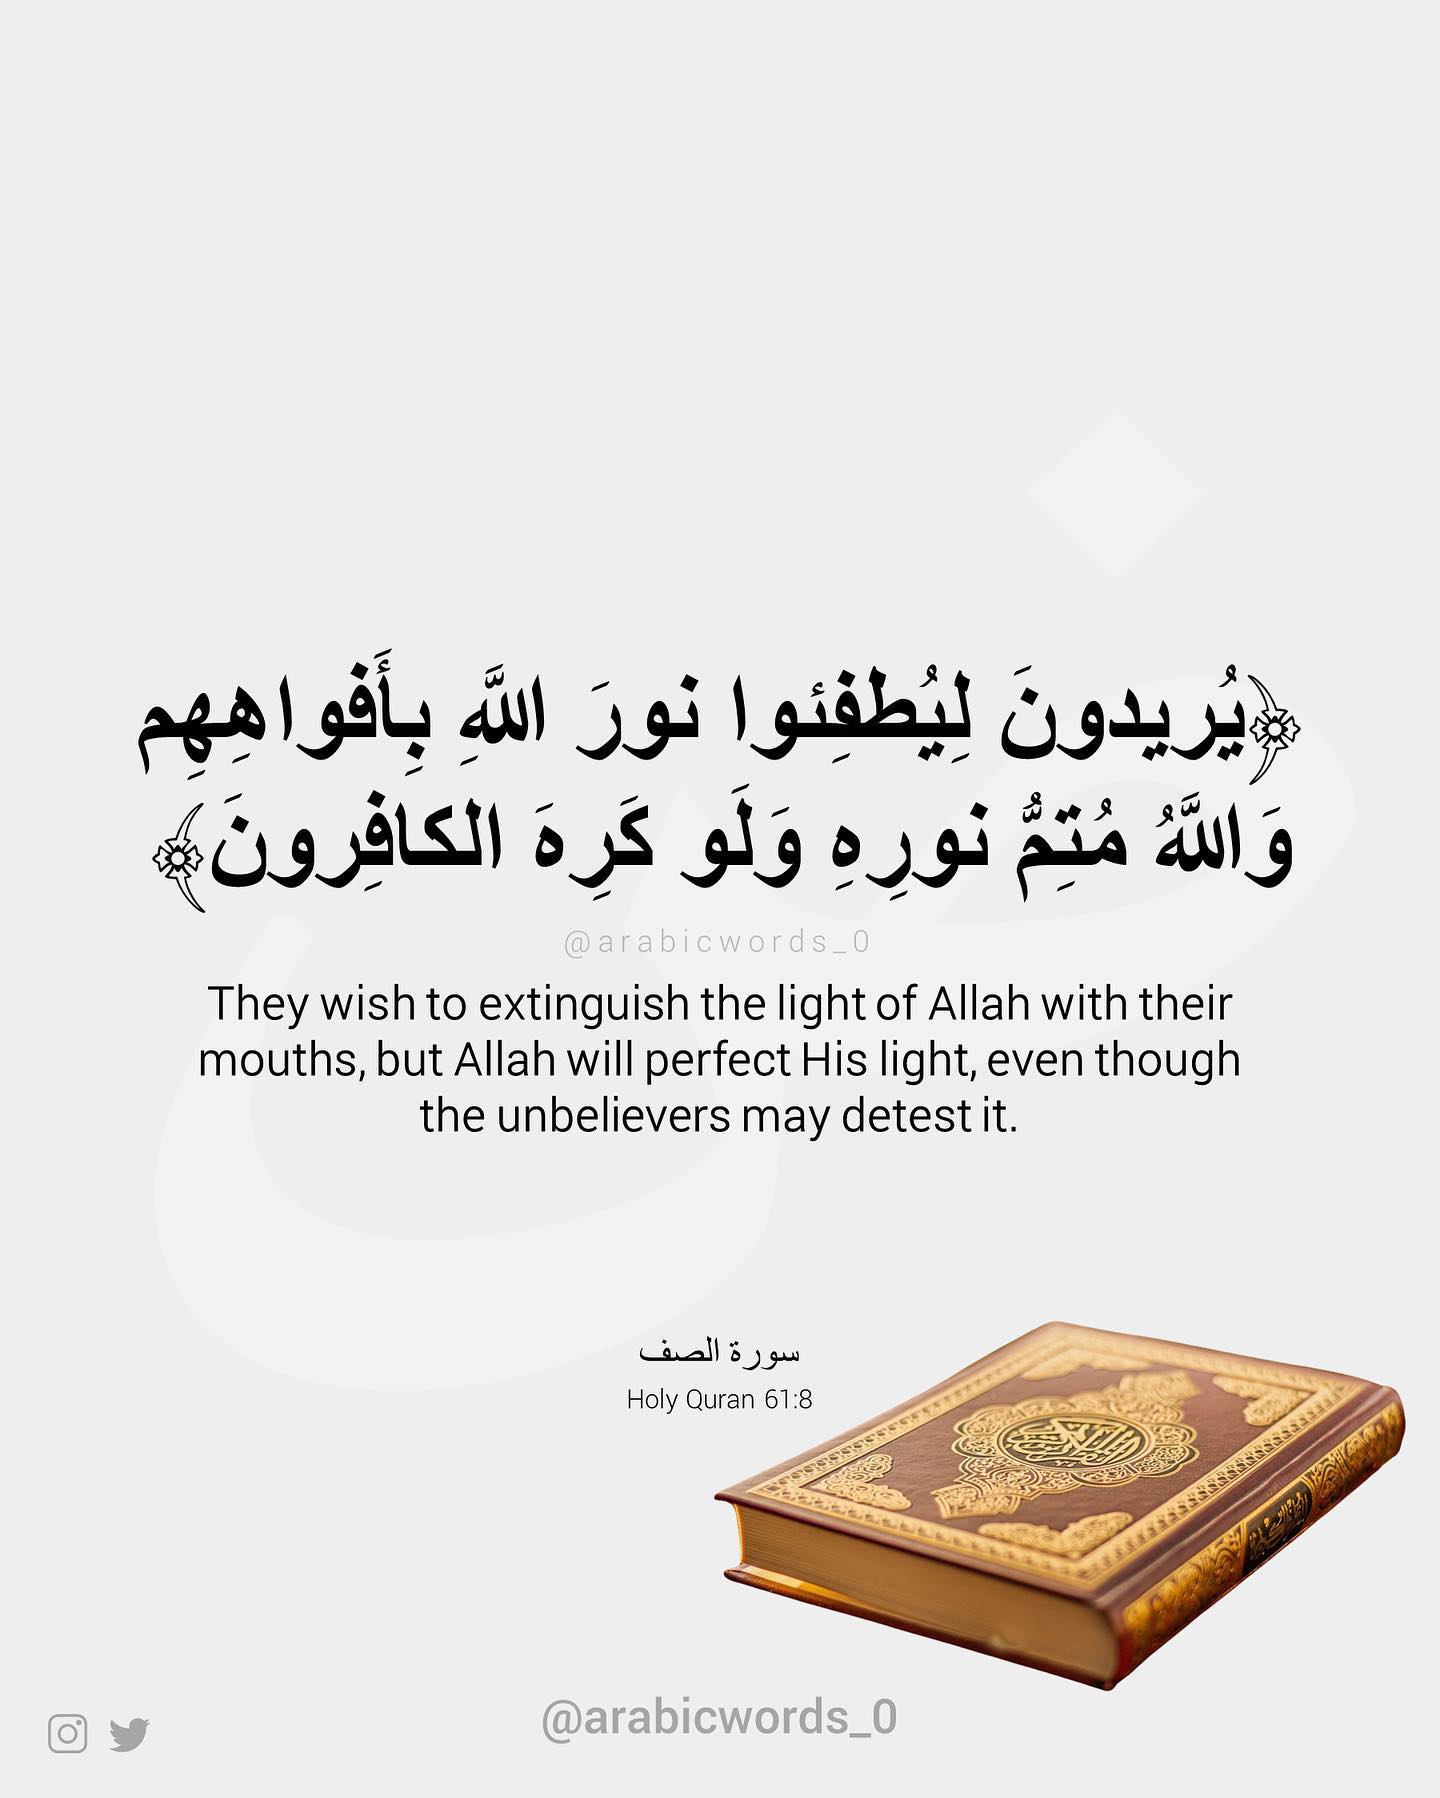 ﴿يُريدونَ لِيُطفِئوا نورَ اللَّهِ بِأَفواهِهِم
وَاللَّهُ مُتِمُّ نورِهِ وَلَو كَرِهَ الكافِرونَ﴾
@arabicwords_0
They wish to extinguish the light of Allah with their
mouths, but Allah will perfect His light, even though
the unbelievers may detest it.
سورة الصف
Holy Quran 61:8
@arabicwords_0